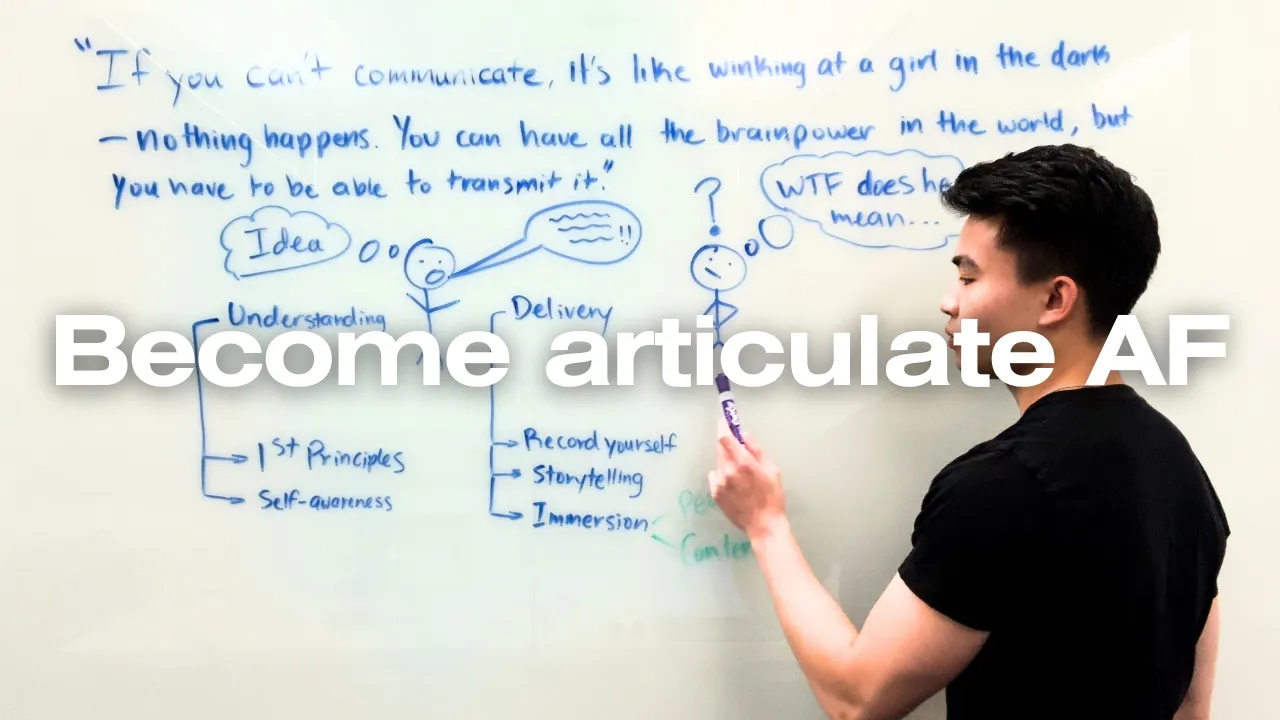 "If you can't communicate, it's like winking at a girl in the dark
— nothing happens. You can have all the brainpower in the world, but
you have to be able to transmit it."
WTF does he
mean...
?
Idea
!!
Understanding
Delivery
Become articulate AF
1st Principles
Self-awareness
Record yourself
Storytelling
Immersion